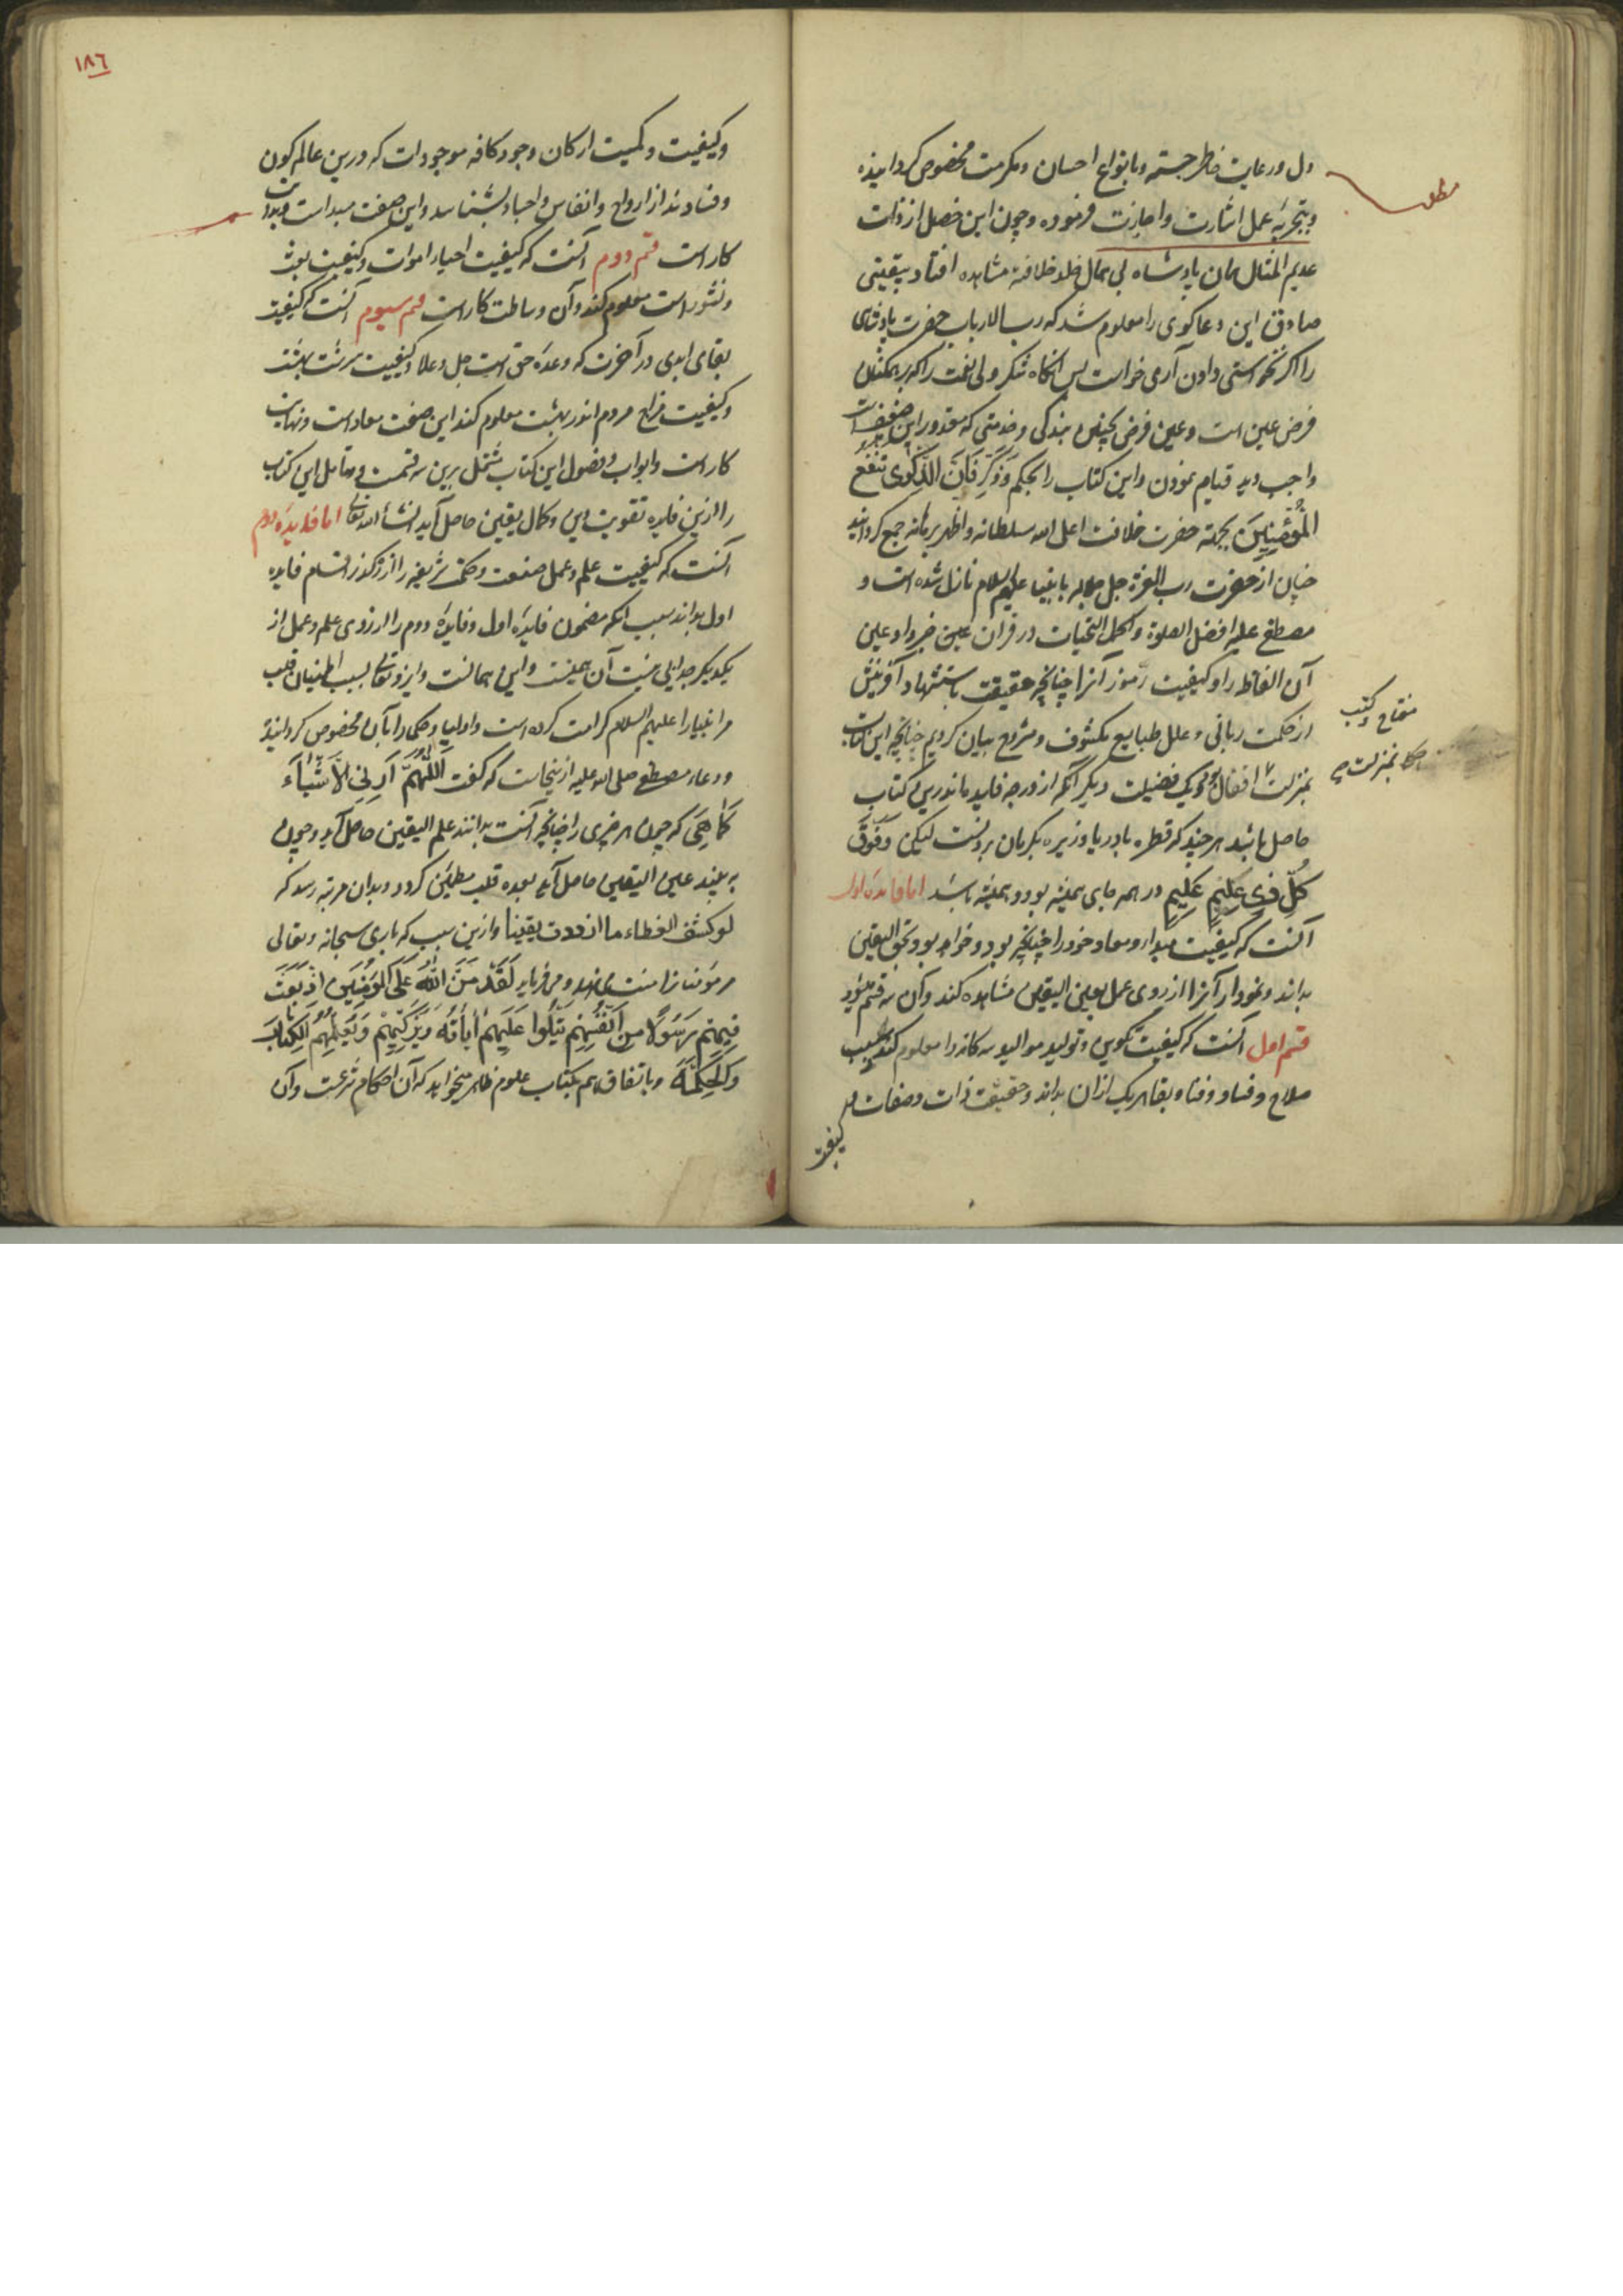 دل در رعایت خاطر جسته و بانواع احسان و مکرمت مخصوص کردانیده
و بتجربهٔ عمل اشارت و اجازت فرموده و چون این فصل از ذات
عدیم المثال آن پادشاه بی همال خلد خلافته مشاهده افتاد بیقینی
صادق این دعاکوی را معلوم شد که رب الارباب حضرت پادشاهی
را داد آری خواست پس آنکاه شکر ولی النعمت را که بر همکنان
فرض عین است و عین فرض بچنین بندکی و خدمتی که مقدور این ضعیف است
واجب دید قیام نمودن و این کتاب را بحکم وَذَكِّرْ فَإِنَّ الذِّكْرَى تَنْفَعُ
الْمُؤْمِنِينَ بجهة حضرت خلافت اعلی الله سلطانه و اظهر برهانه جمع کردانید
چنان از حضرت رب العزة جل جلاله بانبیا علیهم السلام نازل شده است و
مصطفی علیه افضل الصلوة و اکمل التحیات در قرآن عین خبر داد عین
آن الفاظ را و کیفیت رموز آنرا چنانچه حقیقت باستشهاد آفرینش
از حکمت ربانی و علل طبایع مکشوف و مشروح بیان کردیم چنانچه این کتاب
بمنزلت افعال بود یک فضیلت دیکر آنکه از درجه فایده ما ندرین کتاب
حاصل باشد هرچند که قطره بدریا و زیره بکرمان بردنست لیکن وَفَوْقَ
كُلِّ ذِي عِلْمٍ عَلِيمٌ در همه جای همیشه بود و همیشه باشد اما فایدهٔ اول
آنست که کیفیت مبدا و معاد خود را چنانچه بود و خواهد بود بحق الیقین
بداند و نمودار آنرا از روی عمل بعین الیقین مشاهده کند و آن سه قسم شود
قسم اول آنست که کیفیت تکوین و تولید موالید سه کانه را معلوم کند و سبب
صلاح و فساد و فنا و بقا هر یک از آن بداند و حقیقت ذات و صفات
کیفیت
مطلب
مفتاح کتب
بمنزلت
١٨٦
و کیفیت و کمیت ارکان وجود کافه موجودات که درین عالم کون
و فسادند از ارواح و انفاس و اجساد بشناسد و این صفت مبداست و بدایت
کار است قسم دوم آنست که کیفیت احیاء اموات و کیفیت بعث
و نشور است معلوم کند و آن وساطت کار است قسم سیوم آنست که کیفیت
بقای ابدی در آخرت که وعدهٔ حق است جل و علا و کیفیت سرشت بهشت
و کیفیت مزاج مردم اندر بهشت معلوم کند این صفت معاد است و نهایت
کار است و ابواب و فصول این کتاب مشتمل برین سه قسمت و متامل این کتاب
را ازین فایده تقویت دین و کمال یقین حاصل آید انشأ الله تعالی اما فایدهٔ دوم
آنست که کیفیت علم و عمل صنعت و حکمت شریفه را از رهکذر اقسام فایده
اول بداند بسبب آنکه مضمون فایدهٔ اول و فایدهٔ دوم را از روی علم و عمل از
یکدیکر جدایی نیست آن همینست و این همانست و ایزد تعالی بسبب اطمینان قلب
مر انبیا را علیهم السلام کرامت کرده است و اولیا و حکما را بآن مخصوص کردانیده
و دعاء مصطفی صلی الله علیه ازینجاست که کفت اَللّهُمَّ اَرِنِي الْاَشْيَاءَ
كَمَا هِيَ که چون هر چیزی را چنانچه آنست بدانند علم الیقین حاصل آید و چون
به بیند عین الیقین حاصل آید بعده قلب مطمئن کردد و بدان مرتبه رسد که
لو کشف الغطاء ما ازددت یقینا و ازین سبب که باری سبحانه و تعالی
مر مؤمنانرا منت می نهد و می فرماید لَقَدْ مَنَّ اللَّهُ عَلَى الْمُؤْمِنِينَ إِذْ بَعَثَ
فِيهِمْ رَسُولًا مِنْ أَنْفُسِهِمْ يَتْلُوا عَلَيْهِمْ أيَاتِهِ وَيُزَكِّيهِمْ وَيُعَلِّمُهُمُ الْكِتَابَ
وَالْحِكْمَةَ و باتفاق هم بکتاب علوم ظاهر میخواهد که آن احکام شرعست و آن